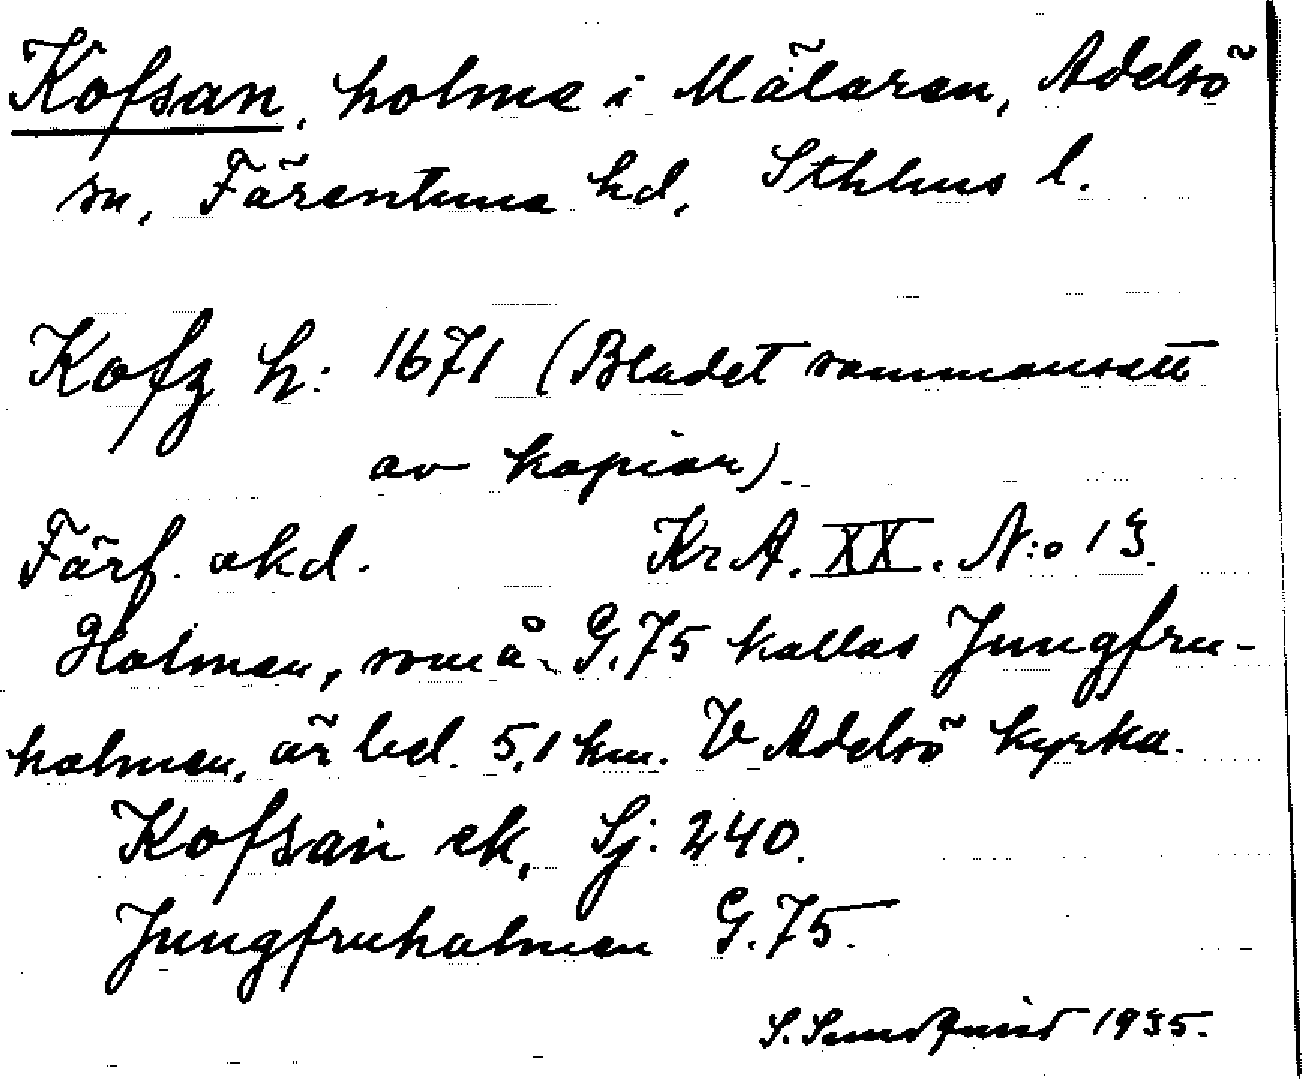 Kofsan, holme i Mälaren, Adelsö
sn, Färentuna hd, Sthlms l.
Kofz h: 1671 (Bladet sammansatt
av kopior).
Färf. akd. KrA. XX. N:o 13.
Holmen, som å G. 75 kallas Jungfru-
holmen, är bel. 5,1 km. V Adelsö kyrka.
Kofsan ek. Sj: 240.
Jungfruholmen G. 75.
S. Sundquist 1935.